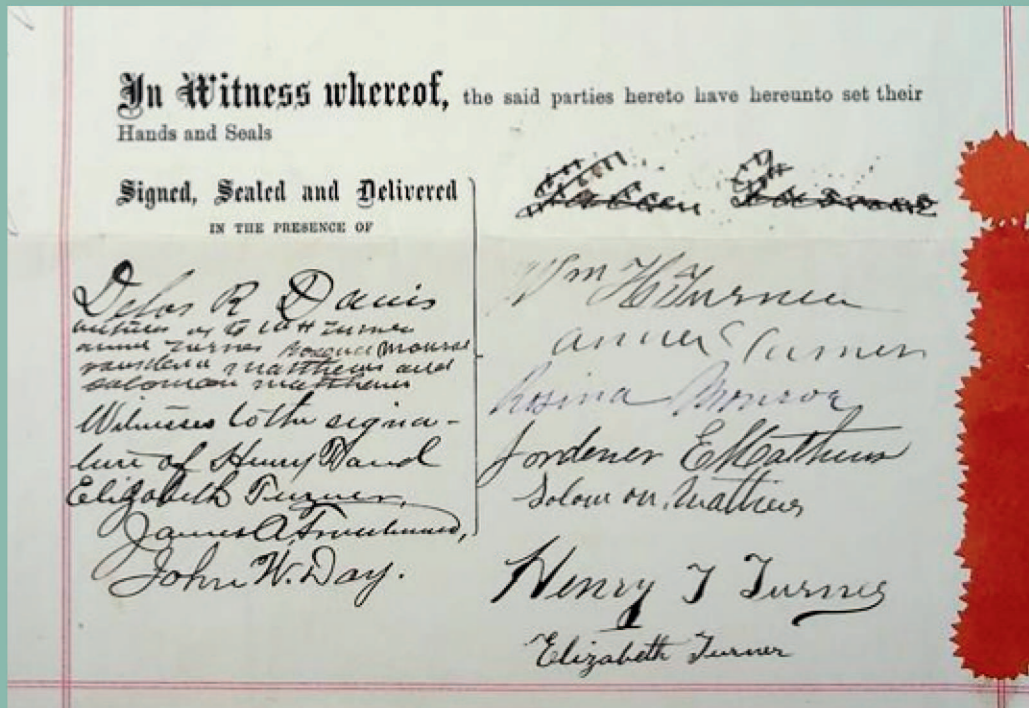 In Witness whereof, the said parties hereto have hereunto set their
Hands and Seals
Signed, Sealed and Delivered
IN THE PRESENCE OF
Delos R Davis
witness as to W H Turner
annie Turner Rosena Monroe
matthews and
solomon matthews
Witnesses to the signa-
ture of Henry and
Elizabeth Turner,
James A
John W. Day.
Wm H Turner
annie Turner
Rosina Monroe
E Matthews
Solomon Matthews
Henry T Turner
Elizabeth Turner